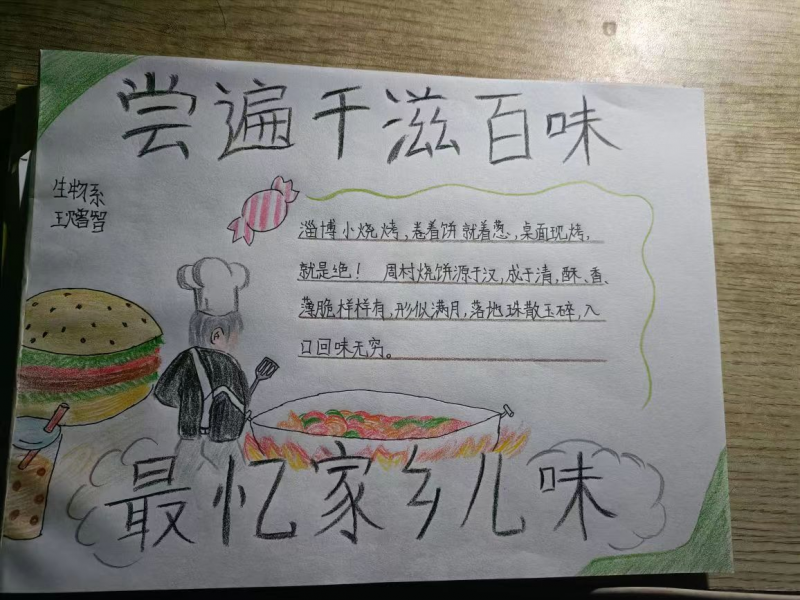 尝遍千滋百味
生物系
王熠智
淄博小烧烤,卷着饼就着葱,桌面现烤,
就是绝! 周村烧饼源于汉,成于清,酥、香、
薄脆样样有,形似满月,落地珠散玉碎,入
口回味无穷。
最忆家乡儿味